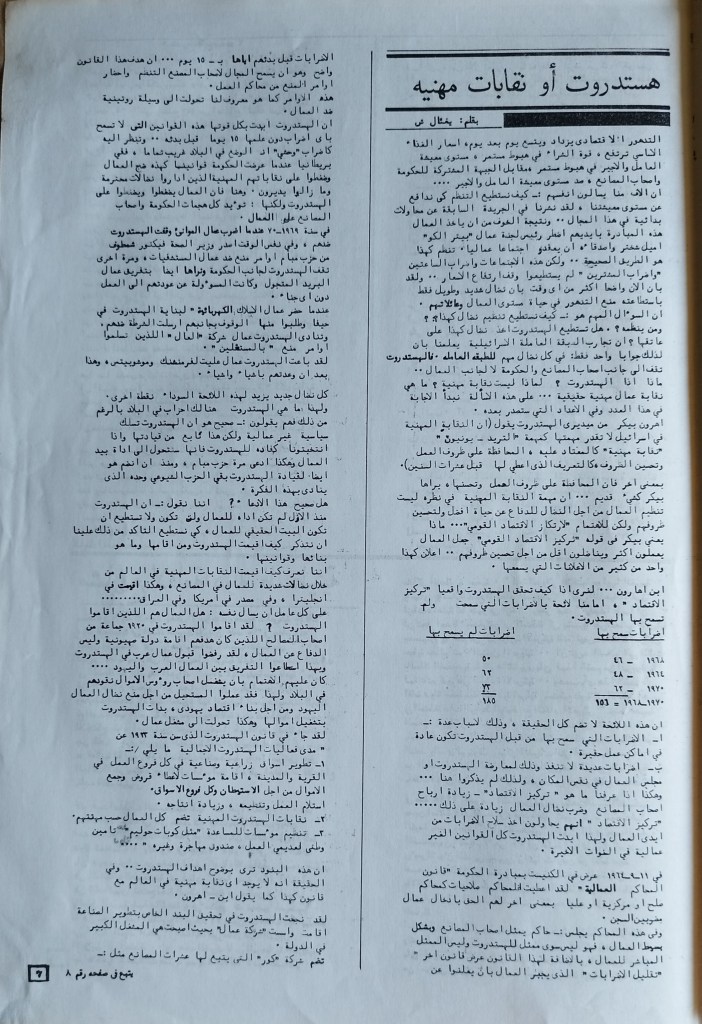 هستدروت أو نقابات مهنيه
بقلم: يفتال غي
التدهور الاقتصادى يزداد ويتسع يوم بعد يوم، اسعار الغذاء
الاساسي ترتفع، قوة الشراء في هبوط مستمر، مستوى معيشة
العامل والاجير في هبوط مستمر، مقابل الجبهة المشتركة للحكومة
واصحاب المصانع، ضد مستوى معيشة العامل والاجير ....
ان آلاف منا يسألون انفسهم :ـ كيف نستطيع التنظم كى ندافع
عن مستوى معيشتنا، لقد نشرنا في الجريدة السابقة عن محاولات
بدائية في هذا المجال .. ونتيجة الخوف من ان ياخذ العمال
هذه المبادرة بايديهم اضطر رئيس لجنة عمال "بيتر الكو"
اميل شختر واصدقائه ان يعقدو اجتماعا عماليا. تنظم كهذا
هو الطريق الصحيحة .. ولكن هذه الاجتماعات واضراب الساعتين
"واضراب المشترين" لم يستطيعوا وقف ارتفاع الاسعار .. ولقد
بان الان واضحا اكثر من اى وقت بان نضال شديد وطويل فقط
باستطاعته منع التدهور في حياة مستوى العمال وعائلاتهم.
ان السؤال المهم هو :ـ كيف نستطيع تنظيم نضال كهذا ؟؟
ومن ينظمه؟ هل تستطيع الهستدروت اخذ نضال كهذا على
عاتقها؟ ان تجارب الطبقة العاملة الاسرائيلية يعلمنا بان
لذلك جوابا واحد فقط: في كل نضال مهم للطبقه العامله .. فالهستدروت
تقف الى جانب اصحاب المصانع والحكومة لا لجانب العمال ..
ماذا اذا الهستدروت ؟ لماذا ليست نقابة مهنية ؟ ما هي
نقابة عمال مهنية حقيقية ... على هذه الأسألة نبدأ الاجابة
في هذا العدد وفي الاعداد التي ستصدر بعده.
اهرون بيكر من مديرى الهستدروت يقول (ان النقابة المهنية
في اسرائيل لا تقدر مهمتها كمهمة "التريد ـ يونيون"
"نقابة مهنية" كالمعتاد عليه، المحافظة على ظروف العمل
وتحسين الظروف، كالتعريف الذى اعطي لها قبل عشرات السنين).
بمعنى اخر فان المحافظة على ظروف العمل وتحسنها، يراها
بيكر كشيء قديم ... ان مهمة النقابة المهنية في نظره ليست
تنظيم العمال من اجل النضال للدفاع عن حياة افضل ولتحسين
ظروفهم ولكن للاهتمام "لارتكاز الاقتصاد القومي"... ماذا
يعني بيكر في قوله "تركيز الاقتصاد القومي" جعل العمال
يعملون اكثر ويناضلون اقل من اجل تحسين ظروفهم .. اعلان كهذا
واحد من كثير من الاعلانات التي يسمعها.
ابن اهارون ... لنرى اذا كيف تحقق الهستدروت واقعيا "تركيز
الاقتصاد"، امامنا لائحة بالاضرابات التي سمحت ولم
تسمح بها الهستدروت.
اضرابات سمح بها اضرابات لم يسمح بها
١٩٦٨ ـ ٤٦ ٥٠
١٩٦٩ ـ ٤٨ ٦٢
١٩٧٠ ـ ٦٢ ٧٣
١٩٧٠-١٩٦٨ = ١٥٦ ١٨٥
ان هذه اللائحة لا تضم كل الحقيقة، وذلك لاسباب عدة :ـ
أ ـ الاضرابات التي سمح بها من قبل الهستدروت تكون عادة
في اماكن عمل صغيرة.
ب ـ اضرابات عديدة لا تنفذ وذلك لمعارضة الهستدروت او
مجلس العمال في نفس المكان، ولذلك لم يذكروا هنا ...
وهكذا اذا عرفنا ما هو "تركيز اقتصاد" ـ زيادة ارباح
اصحاب المصانع وضرب نضال العمال زيادة على ذلك .....
"تركيز الاقتصاد" انهم يحاولون اخذ سلاح الاضرابات من
ايدى العمال ولهذا ايدت الهستدروت كل القوانين الغير
عمالية في السنوات الاخيرة.
في ١١ـ٩ـ١٩٦٤ عرض في الكنيست بمبادرة الحكومة "قانون
المحاكم العمالية" لقد اعطيت للمحاكم صلاحيات كمحاكم
صلح او مركزية او عليا بمعنى اخر لهم الحق بادخال عمال
مضربين السجن.
وفي هذه المحاكم يجلس :ـ حاكم يمثل اصحاب المصانع وبشكل
بسيط العمال، فهو ليس سوى ممثل للهستدروت وليس الممثل
المباشر للعمال، بالاضافة لهذا القانون عرض قانون اخر "
تقليل الاضرابات" الذى يجبر العمال بان يعلنوا عن
الاضرابات قبل بدئهم اياها بـ ـ ١٥ يوم ... ان هدف هذا القانون
واضح وهو ان يسمح المجال لاصحاب المصنع التنظم واحضار
اوامر المنع من محاكم العمل.
هذه الاوامر كما هو معروف لنا تحولت الى وسيلة روتينية
ضد العمال.
ان الهستدروت ايدت بكل قوتها هذه القوانين التى لا تسمح
باى اضراب دون علمها ١٥ يوما قبل بدئه .. وتنظر اليه
كاضراب "وحشي" اذ الوضع في البلاد غريب تماما، ففي
بريطانيا عندما عرضت الحكومة قوانينا كهذه ضج العمال
وضغطوا على نقاباتهم المهنية الذين اداروا نضالات محترمة
وما زالوا يديرون. وهنا فان العمال يضغطوا ويضغطوا على
الهستدروت ولكنها : تؤيد كل هجمات الحكومة واصحاب
المصانع على العمال.
في سنة ١٩٦٩-٧٠ عندما اضرب عمال الموانئ وقفت الهستدروت
ضدهم، وفي نفس الوقت اصدر وزير الصحة فيكتور شمطوف
من حزب مبام اوامر منع ضد عمال المستشفيات، ومرة اخرى
تقف الهستدروت لجانب الحكومة ونراها ايضا بتفريق عمال
البريد المتجول وكانت المسؤولة عن عودتهم الى العمل
دون اى جناء.
عندما حضر عمال الاسلاك الكهربائية" لبناية الهستدروت في
حيفا وطلبوا منها الوقوف بجانبهم ارسلت الشرطة ضدهم،
وتنادى الهستدروت عمال شركة "العال" اللذين تسلموا
اوامر منع "بالمستغلين".
لقد باعت الهستدروت عمال عليت لغرمنهنك وموشوبيتس، وهذا
بعد ان وعدتهم باشياء واشياء.
كل نضال جديد يزيد لهذه اللائحة السوداء نقطة اخرى.
ولهذا ما هي الهستدروت هنالك احزاب في البلاد بالرغم
من ذلك فهم يقولون :ـ صحيح هو ان الهستدروت تسلك
سياسية غير عمالية ولكن هذا تابع من قيادتها واذا
انتخبتونا كقادة للهستدروت فانها ستتحول الى اداة بيد
العمال وهكذا ادعى مرة حزب مبام، ومنذ ان انضم هو
ايضا لقيادة الهستدروت بقي الحزب الشيوعي وحده الذى
ينادى بهذه الفكرة.
هل صحيح هذا الادعاء ؟ اننا نقول :ـ ان الهستدروت
منذ الاول لم تكن اداة للعمال ولن تكون ولا تستطيع ان
تكون البيت الحقيقي للعمال، كي نستطيع التأكد من ذلك علينا
ان نتذكر كيف اقيمت الهستدروت ومن اقامها وما هو
بنائها وقوانينها.
اننا نعرف كيف اقيمت النقابات المهنية في العالم من
خلال نضالات عديدة للعمال في المصانع، وهكذا اقيمت في
انجليترا، وفي مصر في أمريكا وفي العراق........
على كل عامل ان يسأل نفسه : هل العمال هم اللذين اقاموا
الهستدروت ؟ لقد اقاموا الهستدروت في ١٩٢٠ جماعة من
اصحاب المصالح اللذين كان هدفهم اقامة دولة صهيونية وليس
الدفاع عن العمال، لقد رفضوا قبول عمال عرب في الهستدروت
وبهذا استطاعوا التفريق بين العمال العرب واليهود ....
كان عليهم الاهتمام بان يفضل اصحاب رؤوس الاموال نقودهم
في البلاد ولهذا فقد عملوا المستحيل من اجل منع نضال العمال
اليهود ومن اجل بناء اقتصاد يهودى، بدات الهستدروت
بتشغيل اموالها وهكذا تحولت الى مشغل عمال.
لقد جاء في قانون الهستدروت الذى سن سنة ١٩٣٣ عن
" مدى فعاليات الهستدروت الاجمالية ما يلي /:ـ
١ـ تطوير اسواق زراعية وصناعية في كل فروع العمل في
القرية والمدينة، اقامة مؤسسات لاعطاء قروض وجمع
الاموال من اجل الاستيطان وكل فروع الاسواق.
استلام العمل وتنظيمه، وزيادة انتاجه.
٢ـ نقابات الهستدروت المهنية تضم كل العمال حسب مهنتهم.
٣ـ تنظيم مؤسسات للمساعدة "مثل كوبات حوليم" تامين
وطني لعديمي العمل، صندوق مهاجرة وغيره" ....
ان هذه البنود ترى بوضوح اهداف الهستدروت .. وفي
الحقيقة انه لا يوجد اى نقابة مهنية في العالم مع
قانون كهذا كما يقول ابن ـ اهرون.
لقد نجحت الهستدروت في تحقيق البند الخاص بتطوير الصناعة
اقامت واست "شركة عمال" بحيث اصبحت هي المشغل الكبير
في الدولة.
تضم شركة "كور" التى يتبع لها عشرات المصانع مثل :ـ
يتبع في صفحه رقم ٨
٧